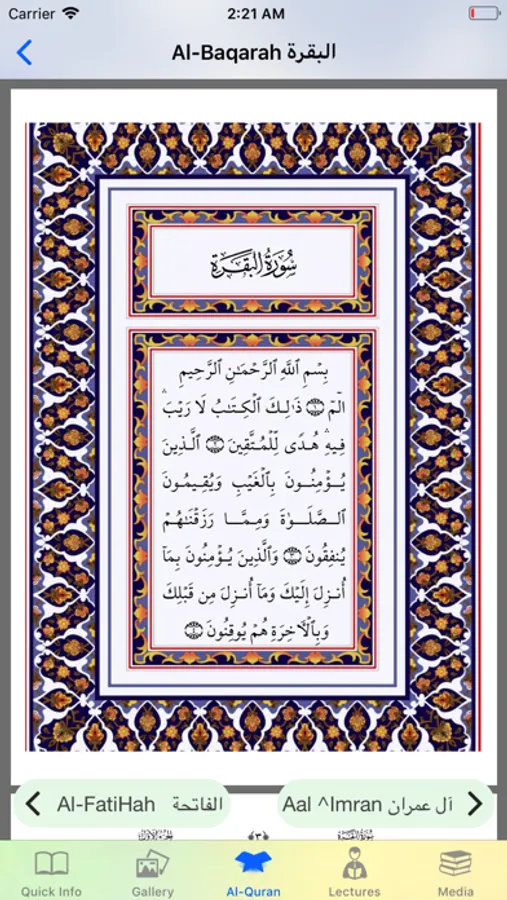 Carrier 2:21 AM
Al-Baqarah البقرة
سُورَةُ البَقَرَةِ
بِسْمِ ٱللَّهِ ٱلرَّحْمَـٰنِ ٱلرَّحِيمِ
الٓمٓ ١ ذَٰلِكَ ٱلْكِتَـٰبُ لَا رَيْبَ ۛ
فِيهِ ۛ هُدًى لِّلْمُتَّقِينَ ٢ ٱلَّذِينَ
يُؤْمِنُونَ بِٱلْغَيْبِ وَيُقِيمُونَ
ٱلصَّلَوٰةَ وَمِمَّا رَزَقْنَـٰهُمْ
يُنفِقُونَ ٣ وَٱلَّذِينَ يُؤْمِنُونَ بِمَآ
أُنزِلَ إِلَيْكَ وَمَآ أُنزِلَ مِن قَبْلِكَ
وَبِٱلْـَٔاخِرَةِ هُمْ يُوقِنُونَ ٤
Al-FatiHah الفاتحة
Aal ^Imran آل عمران
سُورَةُ البَقَرَةِ ٣ الجُزْءُ الأَوَّلُ
Quick Info Gallery Al-Quran Lectures Media